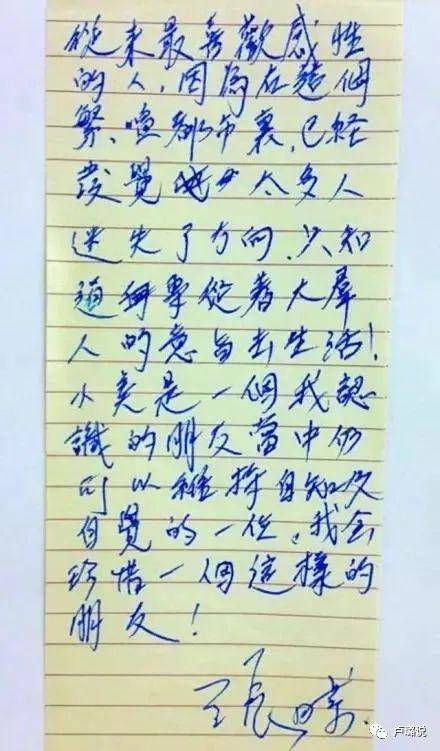 從來最喜歡感性
的人，因為在這個
繁喧都市裏，已經
發覺 太多人
迷失了方向，只知
道 從着大羣
人的意旨去生活！
小美是一個我認
識的朋友當中仍
可以維持自知及
自覺的一位，我會
珍惜一個這樣的
朋友！
卢璐说